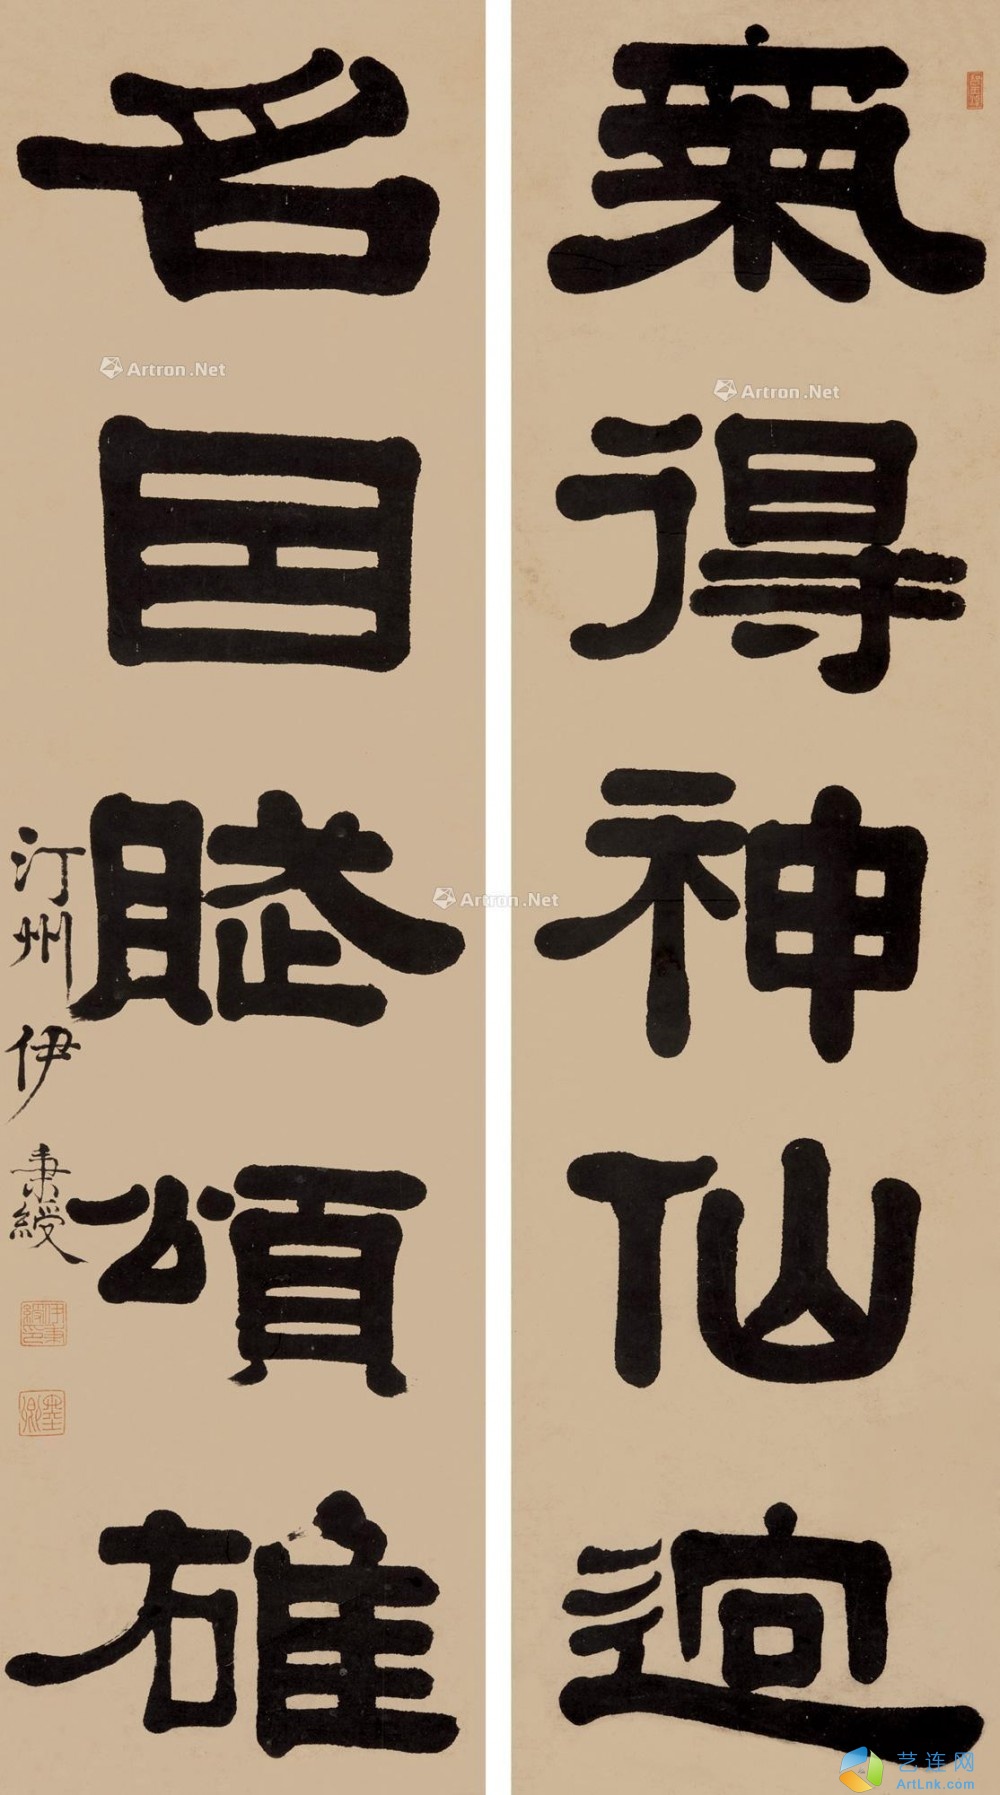 氣得神仙迥
名因賦頌雄
汀州伊秉綬
伊秉綬印
墨卿
Artron.Net
Artron.Net
Artron.Net
艺连网
ArtLnk.com